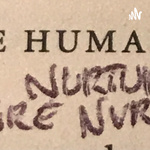 E HUMA
NURTU
RE NUR